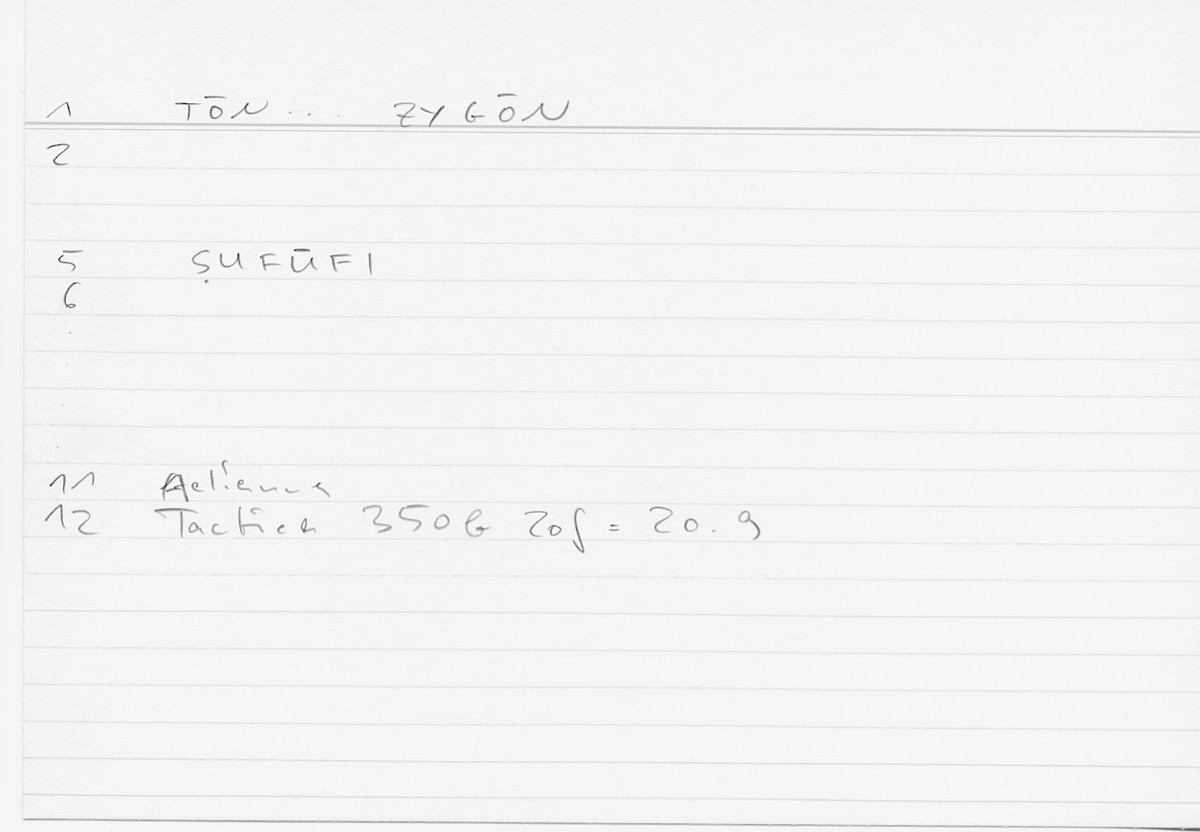 1 TŌN... ZYGŌN
2
5 ṢUFŪFI
6
11 Aelianus
12 Tactica 350b 20f = 20.9